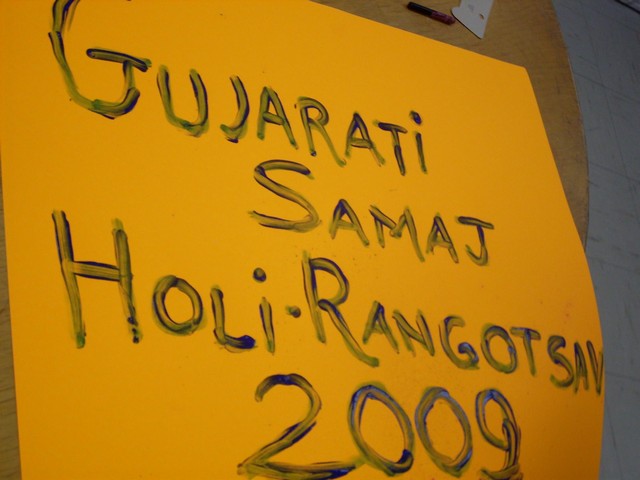 GUJARATi
SAMAJ
HOLi-RANGOTSAV
2009